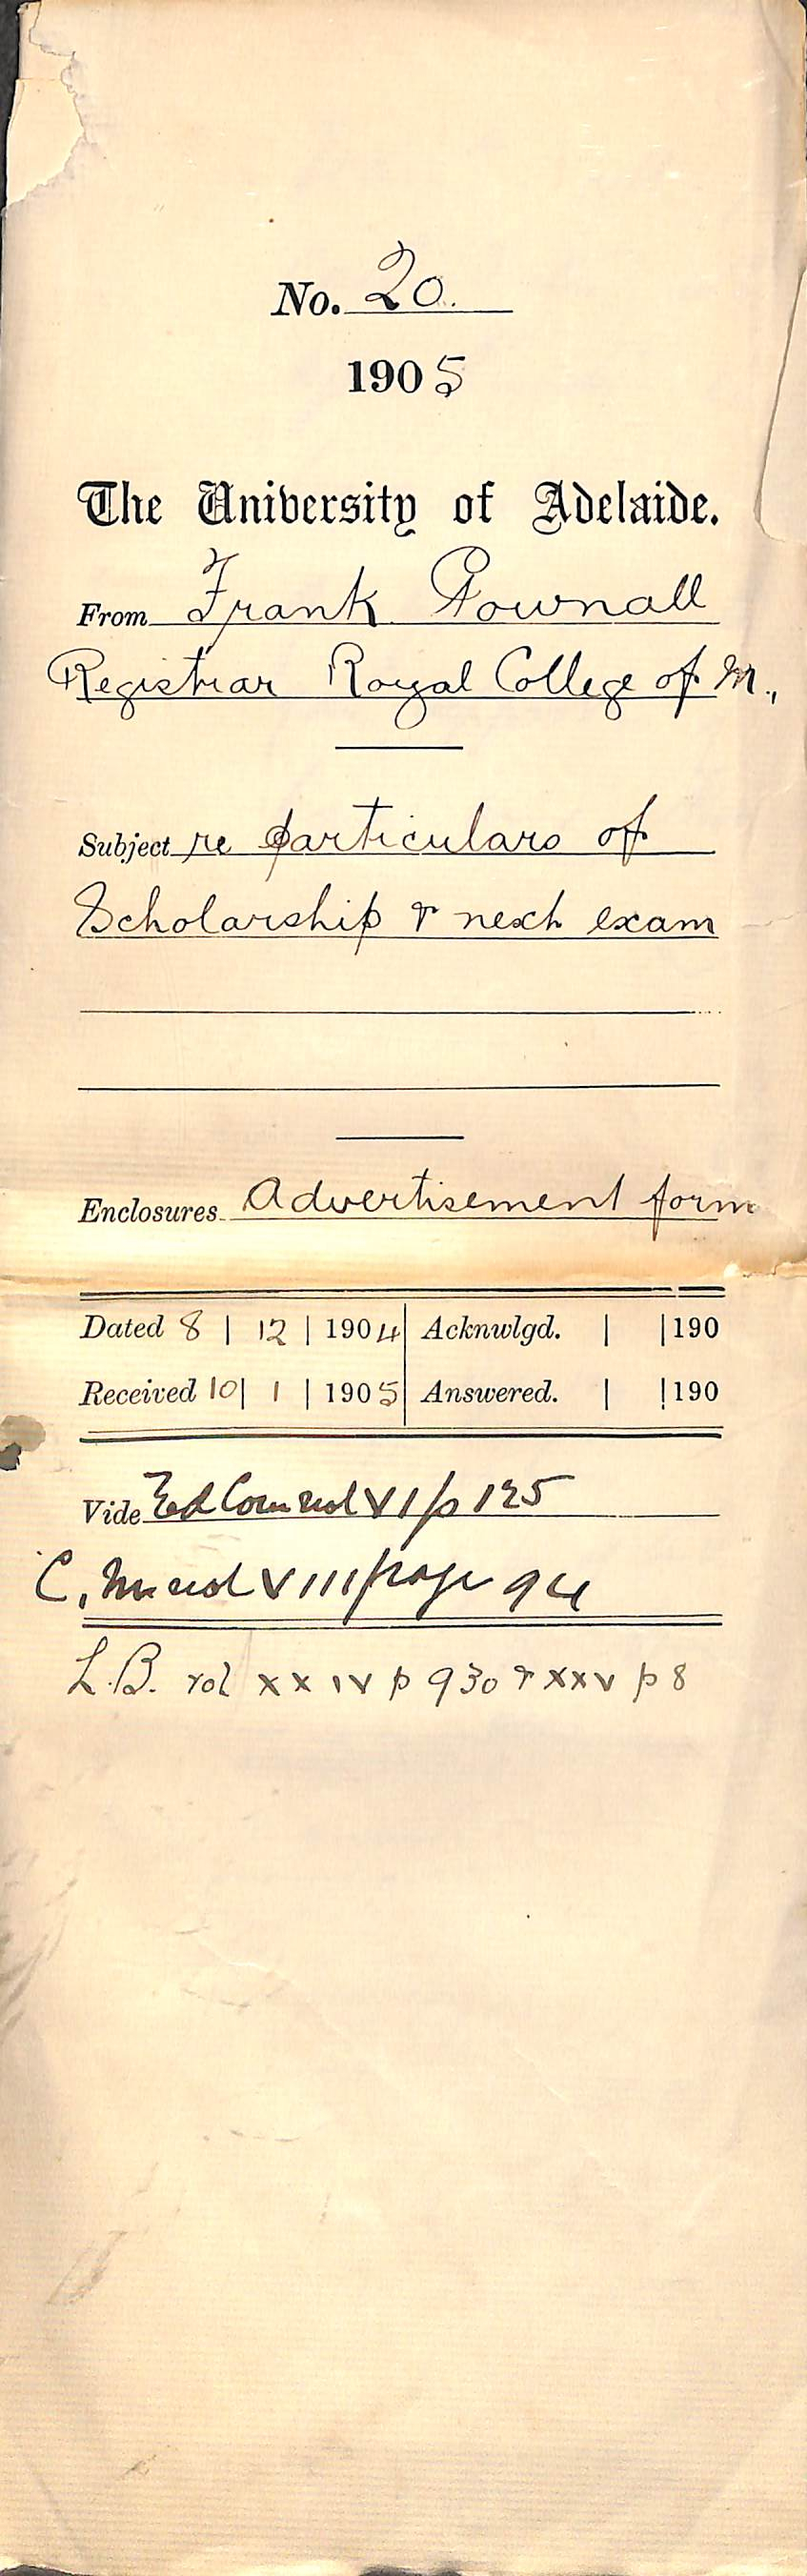 No. 20.
1905
The University of Adelaide.
From Frank Pownall
Registrar Royal College of M.,
Subject re particulars of
Scholarship & next exam
Enclosures Advertisement form
Dated 8 | 12 | 1904 Acknwlgd. | |190
Received 10| 1 | 1905 Answered. | |190
Vide Ed Com vol VI p 125
C. M vol VIII page 94
L.B. vol XXIV p 930 & XXV p 8